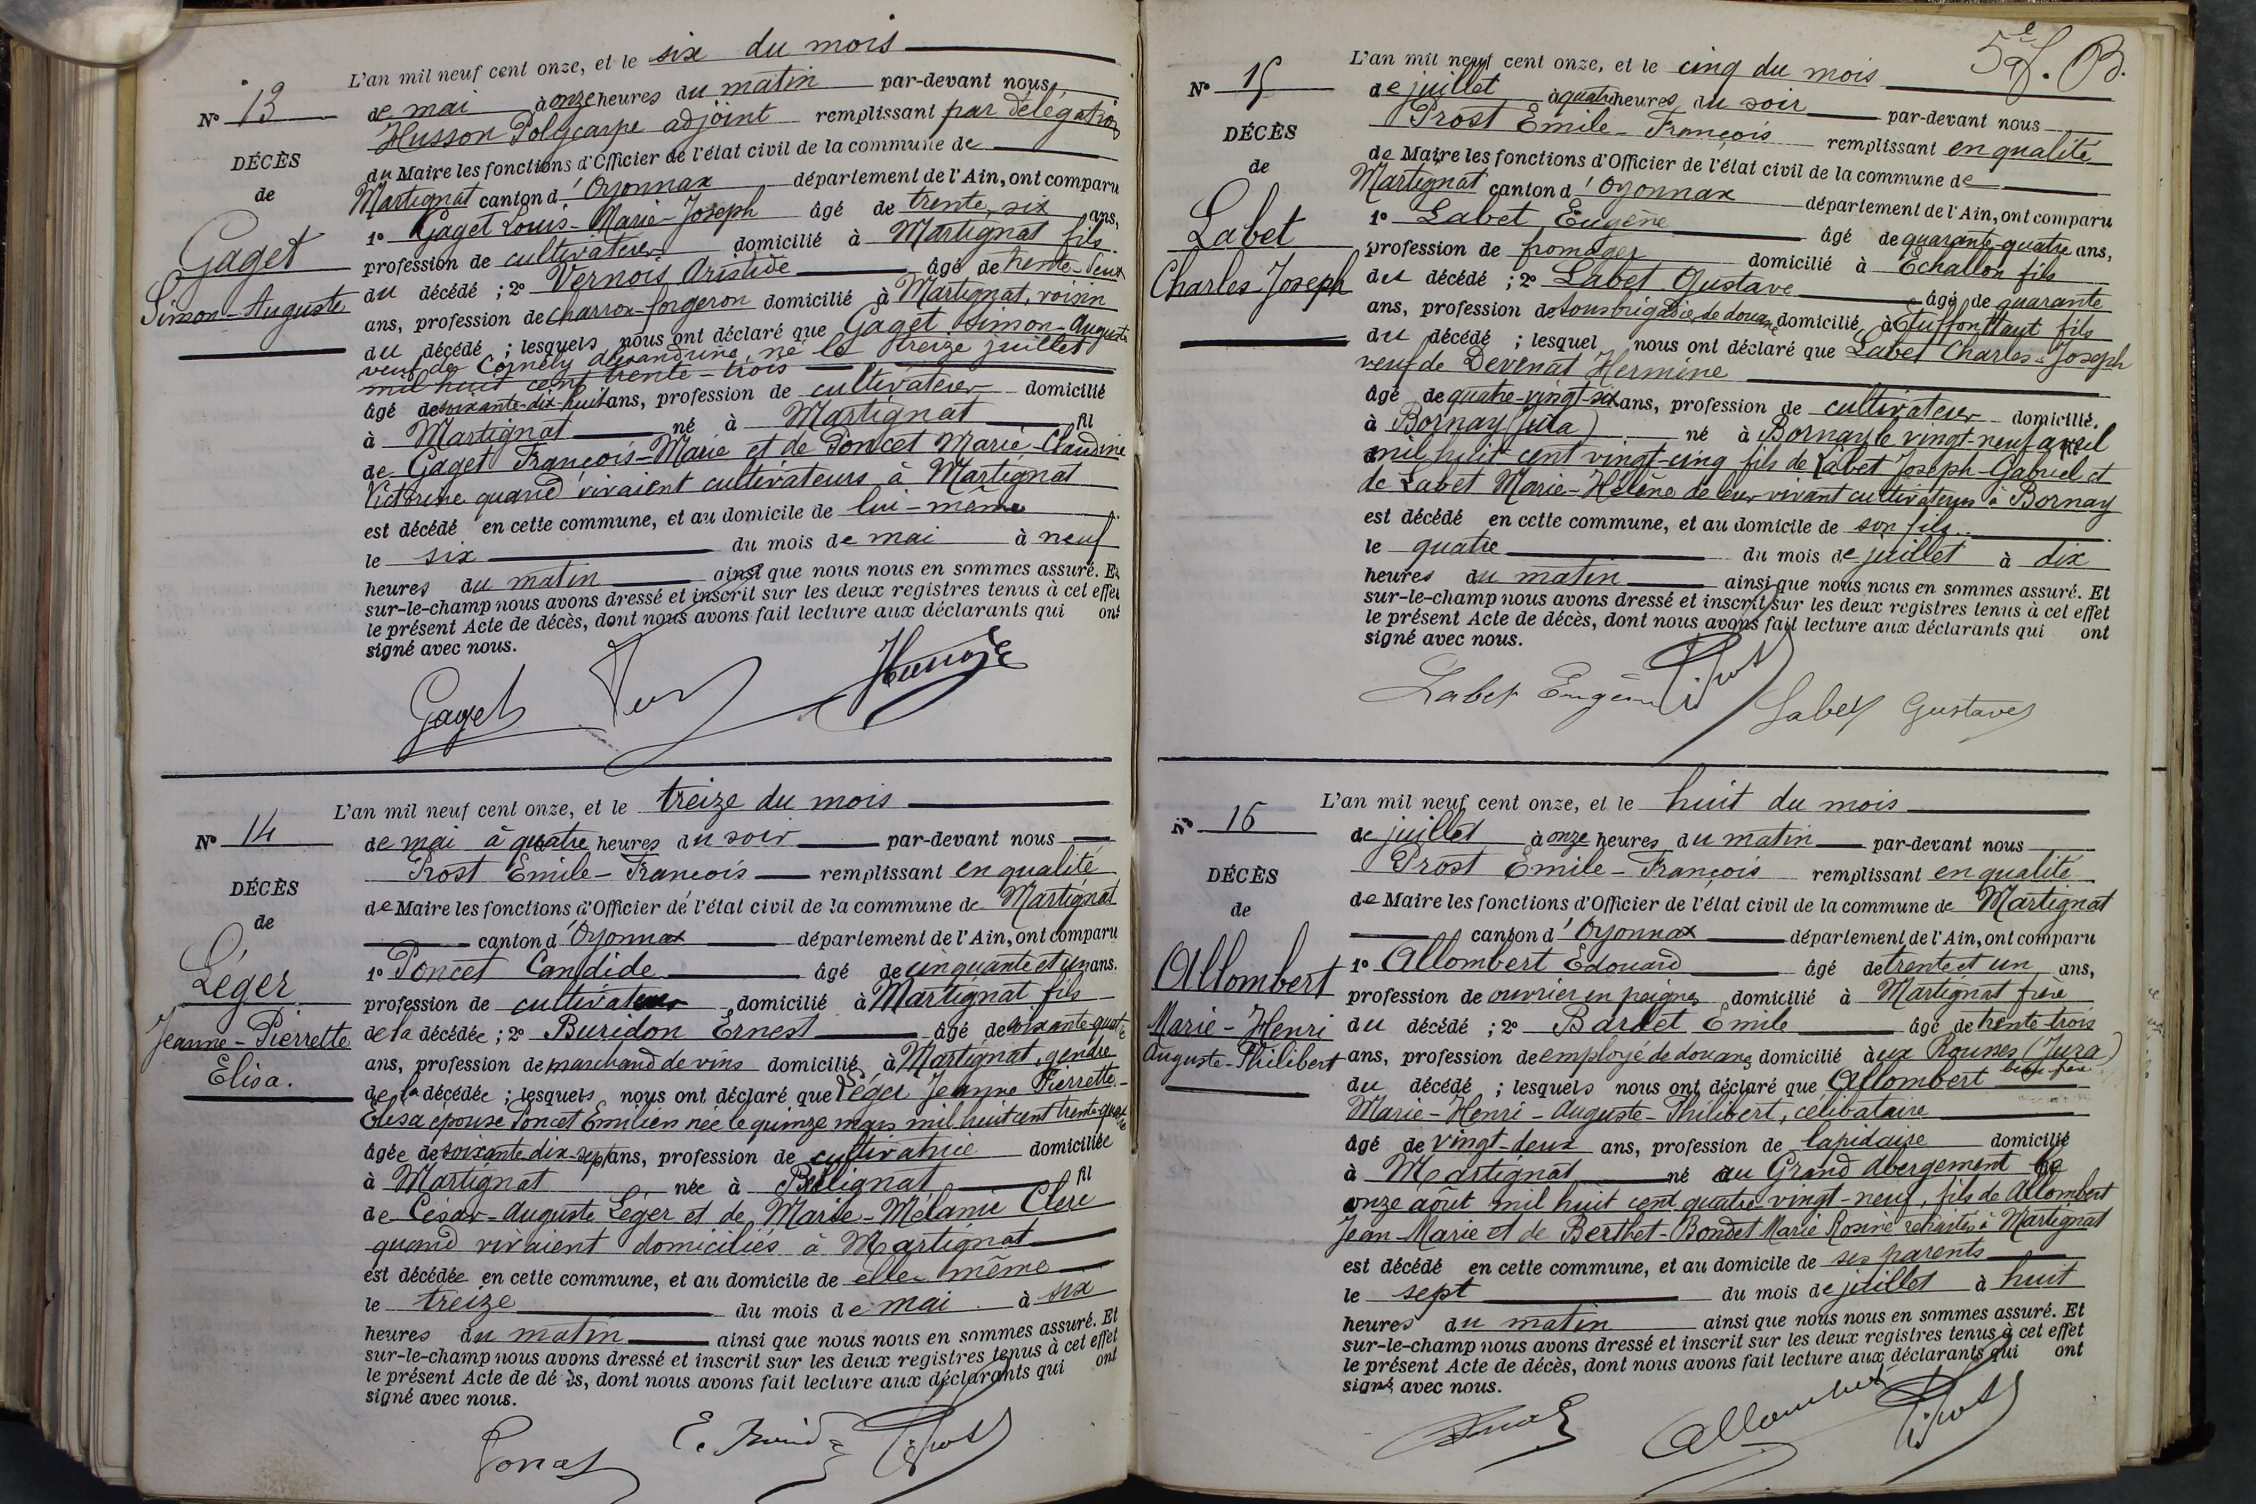 L'an mil neuf cent onze, et le six du mois
N° 13
de mai à onze heures du matin par-devant nous
Husson Polycarpe adjoint remplissant par délégation
du Maire les fonctions d'Officier de l'état civil de la commune de
Martignat canton d'Oyonnax département de l'Ain, ont comparu
1° Gaget Louis-Marie-Joseph âgé de trente six ans,
profession de cultivateur domicilié à Martignat fils
du décédé ; 2° Vernois Aristide âgé de trente-deux
ans, profession de charron-forgeron domicilié à Martignat, voisin
du décédé ; lesquels nous ont déclaré que Gaget Simon-Auguste
veuf de Cornély Alexandrine, né le treize juillet
mil huit cent trente-trois
âgé de soixante-dix-huit ans, profession de cultivateur domicilié
à Martignat né à Martignat fil
de Gaget François-Marie et de Poncet Marie-Claudine
Victorine quand vivaient cultivateurs à Martignat
est décédé en cette commune, et au domicile de lui-même
le six du mois de mai à neuf
heures du matin ainsi que nous nous en sommes assuré. Et
sur-le-champ nous avons dressé et inscrit sur les deux registres tenus à cet effet
le présent Acte de décès, dont nous avons fait lecture aux déclarants qui ont
signé avec nous.
DÉCÈS
de
Gaget
Simon-Auguste
Gaget
L'an mil neuf cent onze, et le treize du mois
N° 14
de mai à quatre heures du soir par-devant nous
Prost Emile-François remplissant en qualité
de Maire les fonctions d'Officier de l'état civil de la commune de Martignat
canton d'Oyonnax département de l'Ain, ont comparu
1° Poncet Candide âgé de cinquante et un ans.
profession de cultivateur domicilié à Martignat fils
de la décédée ; 2° Buridon Ernest âgé de soixante-quatre
ans, profession de marchand de vins domicilié à Martignat, gendre
de la décédée ; lesquels nous ont déclaré que Léger Jeanne Pierrette-
Elisa épouse Poncet Emilien née le quinze mars mil huit cent trente-quatre
âgée de soixante dix-sept ans, profession de cultivatrice domiciliée
à Martignat née à Bélignat fil
de César-Auguste Léger et de Marie-Mélanie Clerc
quand vivaient domiciliés à Martignat
est décédée en cette commune, et au domicile de elle même
le treize du mois de mai à six
heures du matin ainsi que nous nous en sommes assuré. Et
sur-le-champ nous avons dressé et inscrit sur les deux registres tenus à cet effet
le présent Acte de dé ès, dont nous avons fait lecture aux déclarants qui ont
signé avec nous.
DÉCÈS
de
Léger
Jeanne-Pierrette
Elisa.
L'an mil neuf cent onze, et le cinq du mois
N° 15
de juillet à quatre heures du soir par-devant nous
Prost Emile-François remplissant en qualité
de Maire les fonctions d'Officier de l'état civil de la commune de
Martignat canton d'Oyonnax département de l'Ain, ont comparu
1° Labet Eugène âgé de quarante-quatre ans,
profession de fromager domicilié à Echallon fils
du décédé ; 2° Labet Gustave âgé de quarante
ans, profession de sousbrigadier de douane domicilié à Chuffontaut fils
du décédé ; lesquel nous ont déclaré que Labet Charles-Joseph
veuf de Devenat Hermine
âgé de quatre-vingt-six ans, profession de cultivateur domicilié.
à Bornay (Jura) né à Bornay le vingt-neuf avril
mil huit cent vingt-cinq fils de Labet Joseph-Gabriel et
de Labet Marie-Hélène de leur vivant cultivateurs à Bornay
est décédé en cette commune, et au domicile de son fils
le quatre du mois de juillet à dix
heures du matin ainsi que nous nous en sommes assuré. Et
sur-le-champ nous avons dressé et inscrit sur les deux registres tenus à cet effet
le présent Acte de décès, dont nous avons fait lecture aux déclarants qui ont
signé avec nous.
DÉCÈS
de
Labet
Charles Joseph
Labet Eugène Labet Gustave
L'an mil neuf cent onze, et le huit du mois
N° 16
de juillet à onze heures du matin par-devant nous
Prost Emile-François remplissant en qualité
de Maire les fonctions d'Officier de l'état civil de la commune de Martignat
canton d'Oyonnax département de l'Ain, ont comparu
1° Allombert Edouard âgé de trente et un ans,
profession de ouvrier en peignes domicilié à Martignat frère
du décédé ; 2° Bardet Emile âgé de trente-trois
ans, profession de employé de douanes domicilié aux Rousses (Jura)
du décédé ; lesquels nous ont déclaré que Allombert beau frère
Marie-Henri-Auguste-Philibert, célibataire
âgé de vingt-deux ans, profession de lapidaire domicilié
à Martignat né au Grand Abergement le
onze août mil huit cent quatre-vingt-neuf, fils de Allombert
Jean-Marie et de Berthet-Bondet Marie Rosine retraités à Martignat
est décédé en cette commune, et au domicile de ses parents
le sept du mois de juillet à huit
heures du matin ainsi que nous nous en sommes assuré. Et
sur-le-champ nous avons dressé et inscrit sur les deux registres tenus à cet effet
le présent Acte de décès, dont nous avons fait lecture aux déclarants qui ont
signé avec nous.
DÉCÈS
de
Allombert
Marie-Henri
Auguste-Philibert
Allombert